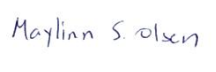 Maylinn S. Olsen